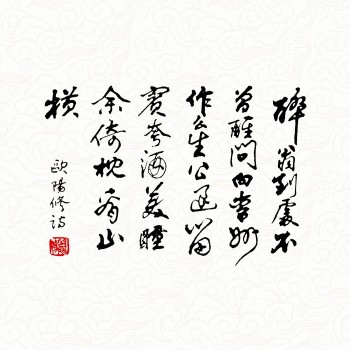 醉翁到處不
曾醒問向青州
作麼生公退留
賓夸酒美睡
余倚枕看山
橫
歐陽修詩